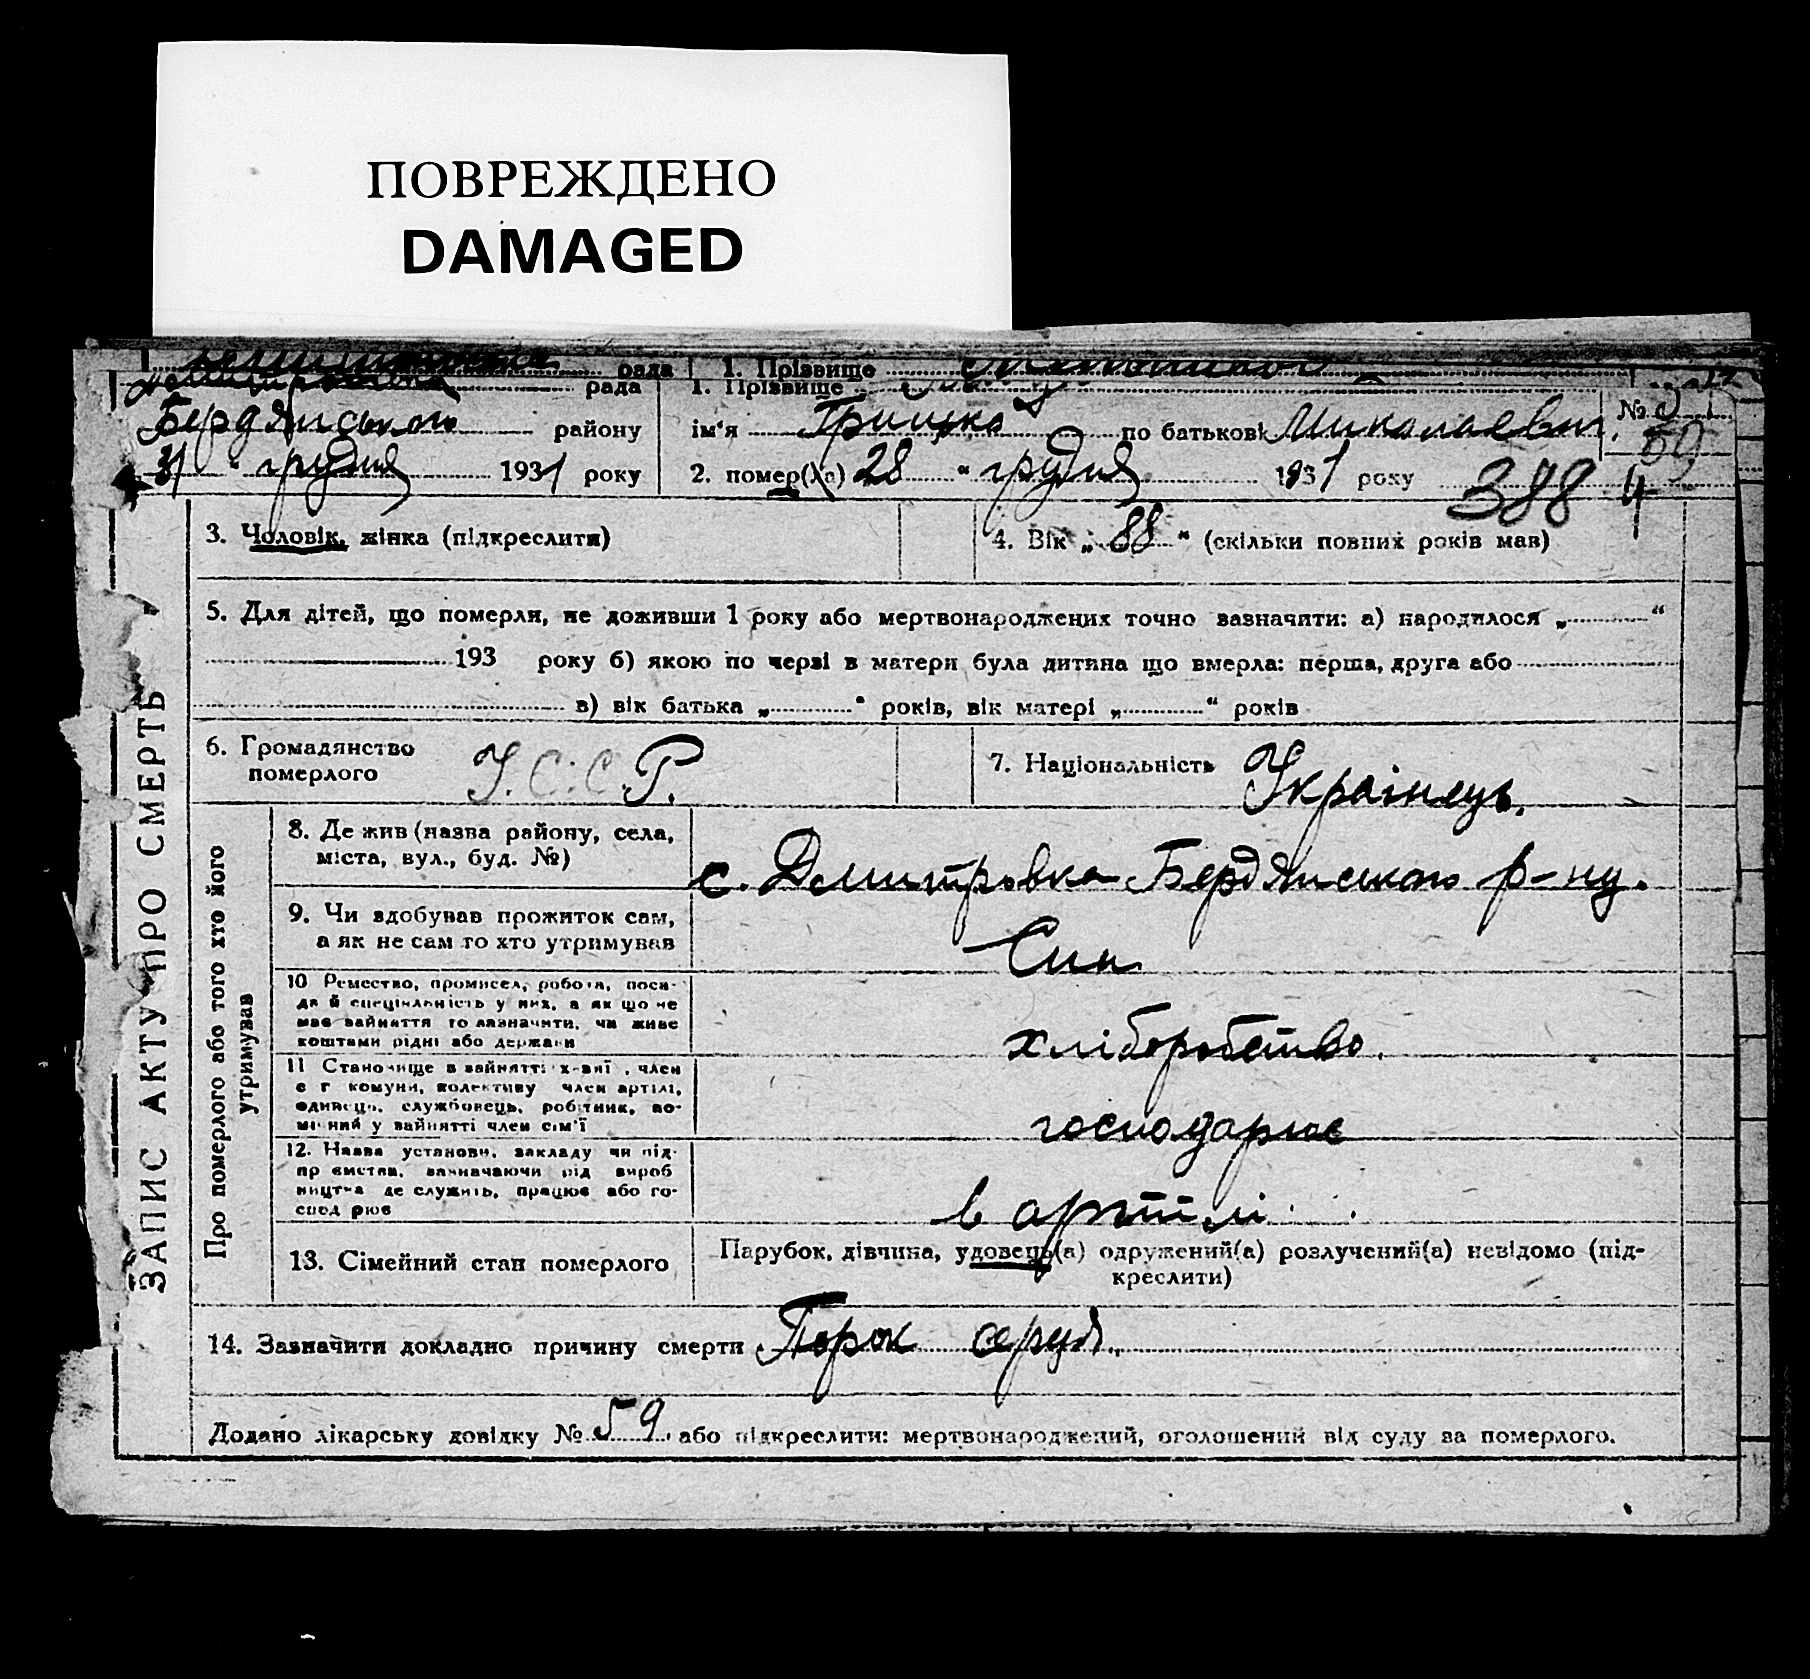 ПОВРЕЖДЕНО
DAMAGED
рада 1. Прізвище
рада 1. Прізвище
Бердянського району ім'я Грицько по батькові Миколаевич. №
59
31 " грудня 1931 року 2. помер(ла) 28 " грудня 1931 року 388 4
3. Чоловік, жінка (підкреслити) 4. Вік „ 88 " (скільки повних років мав)
5. Для дітей, що померли, не доживши 1 року або мертвонароджених точно зазначити: а) народилося „ "
193 року б) якою по черзі в матери була дитина що вмерла: перша, друга або
в) вік батька „ " років, вік матері „ " років
6. Громадянство
померлого
У.С.С.Р.
7. Національність Українець.
ЗАПИС АКТУ ПРО СМЕРТЬ
Про померлого або того хто його
утримував
8. Де жив (назва району, села,
міста, вул., буд. №)
с. Дмитровка Бердянського р-ну.
9. Чи здобував прожиток сам,
а як не сам то хто утримував
Син
10 Ремество, промисел, робота, поса-
да й спеціяльність у них, а як що не
має зайняття то зазначити, чи живе
коштами рідні або держави
хліборобство.
11 Становище в зайнятті , член
с г комуни, колективу член артілі,
одинець, службовець, робітник, по-
мічний у зайнятті член сім'ї
господарює
12. Назва установи, закладу чи під-
приємства, зазначаючи рід вироб
ництва де служить, працює або го-
сподарює
в артілі
13. Сімейний стан померлого
Парубок, дівчина, удовець(а) одружений(а) розлучений(а) невідомо (під-
креслити)
14. Зазначити докладно причину смерти Порок серця.
Додано лікарську довідку № 59 або підкреслити: мертвонароджений, оголошений від суду за померлого.